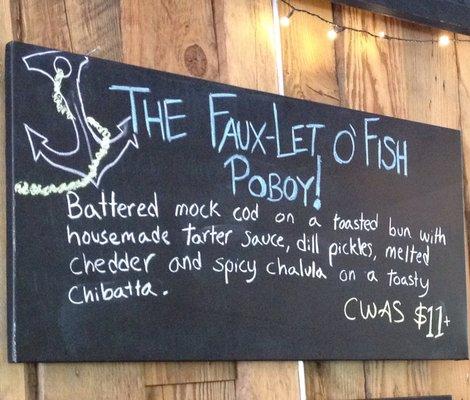 The Faux-Let O' Fish
Poboy!
Battered mock cod on a toasted bun with
housemade Tarter sauce, dill pickles, melted
Chedder and spicy chalula on a toasty
Chibatta.
CWAS $11+